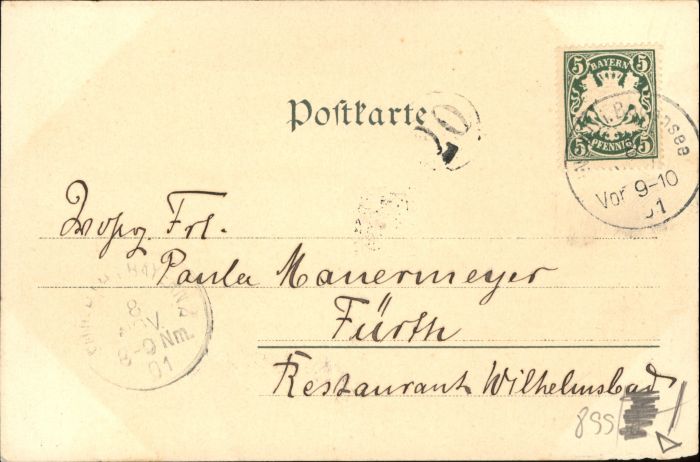 5 BAYERN 5
5 PFENNIG 5
Postkarte
20
Vor 9-10
01
Frl.
Paula Mauermeyer
8
NOV.
8-9 Nm.
01
Fürth
Restaurant Wilhelmsbad
899